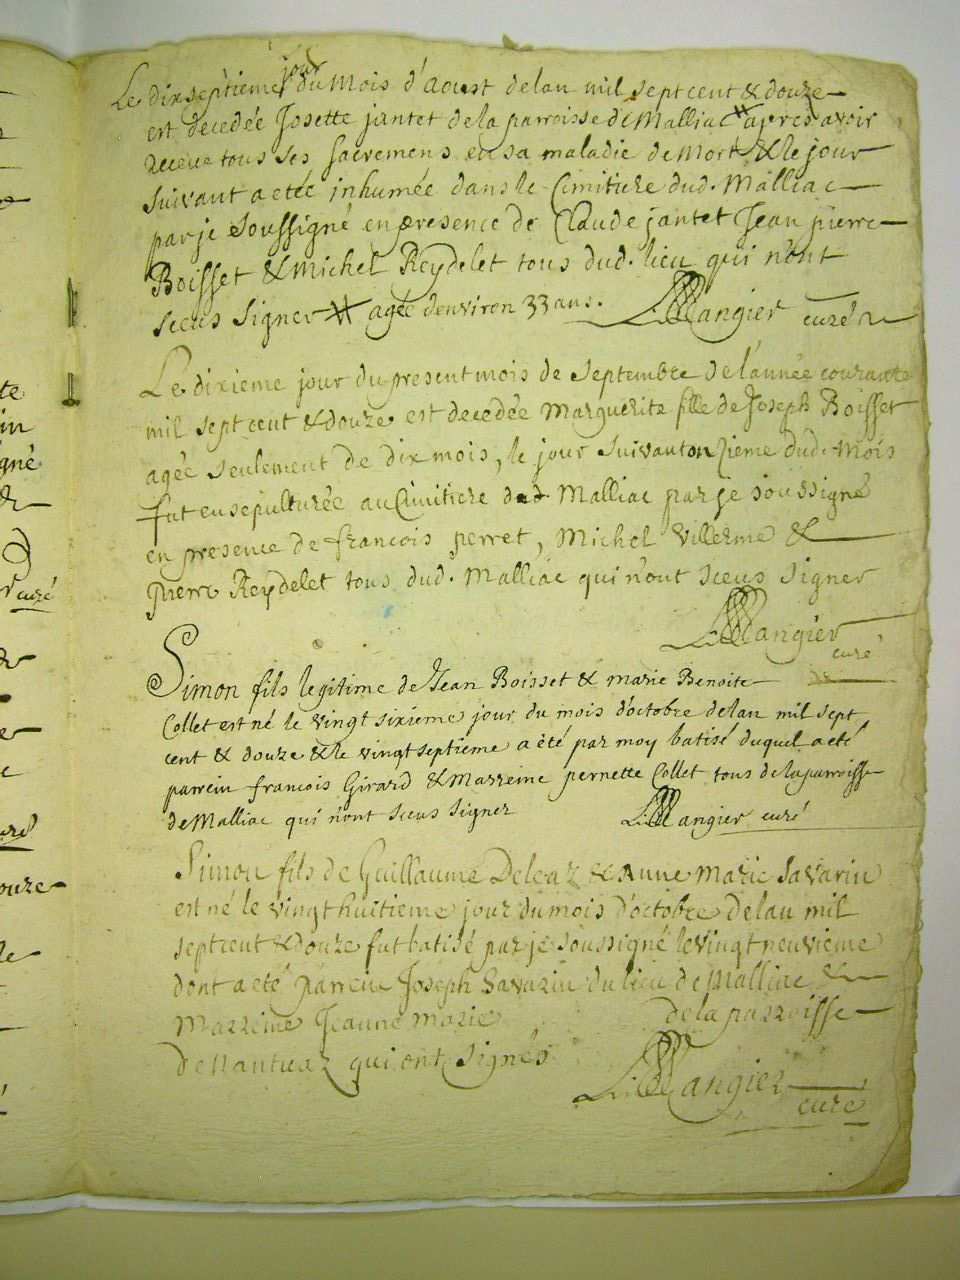 Le dixseptieme jour du mois d'aoust delan mil sept cent & douze
est decedée Josette jantet dela parroisse de Malliac # apres avoir
receue tous ses sacremens en sa maladie de mort & le jour
suivant a etée inhumée dans le Cimitiere dud. Malliac
par je soussigné en presence de Claude jantet Jean pierre
Boisset & Michel Reydelet tous dud. lieu qui n'ont
sceus signer # agée denviron 33 ans. Mangier curé
Le dixieme jour du present mois de septembre de l'année courante
mil sept cent & douze est decedée Marguerite fille de Joseph Boisset
agée seulement de dix mois, le jour suivant onzieme dud. mois
fut ensepulturée au Cimitiere dud Malliac par je soussigné
en presence de francois perret, Michel Villerme &
pierre Reydelet tous dud. Malliac qui n'ont sceus signer
Mangier
curé
Simon fils legitime de Jean Boisset & marie Benoite
Collet est né le vingt sixieme jour du mois d'octobre delan mil sept
cent & douze & le vingtseptieme a été par moy batisé duquel a eté
parrein francois Girard & Marreine pernette Collet tous dela parroisse
de Malliac qui n'ont sceus signer Mangier curé
Simon fils de Guillaume Deleaz & Anne Marie Savarin
est né le vingthuitieme jour du mois d'octobre delan mil
septcent & douze fut batisé par je soussigné le vingt neuvieme
dont a eté parrein Joseph Savarin du lieu de Malliac &
Marreine Jeanne marie dela parroisse
de Nantuaz qui ont signés
Mangier
curé